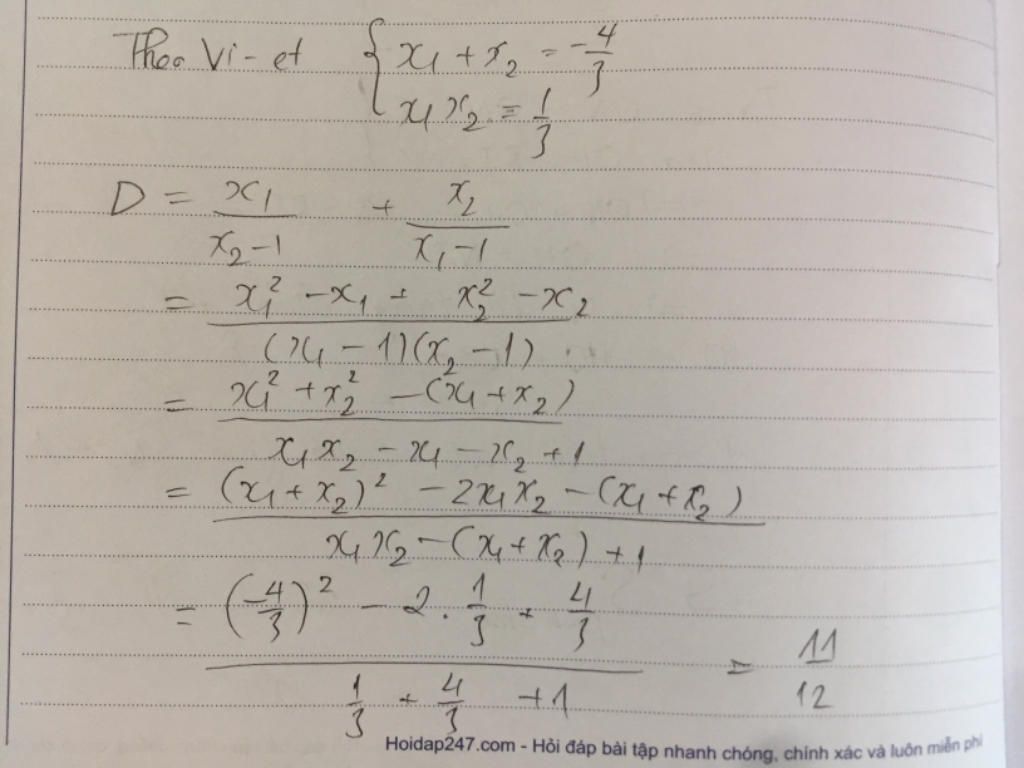 Theo Vi-et { x₁ + x₂ = -4/3
x₁x₂ = 1/3
D = x₁/(x₂-1) + x₂/(x₁-1)
= (x₁² - x₁ + x₂² - x₂)/((x₁ - 1)(x₂ - 1))
= (x₁² + x₂² - (x₁ + x₂))/(x₁x₂ - x₁ - x₂ + 1)
= ((x₁ + x₂)² - 2x₁x₂ - (x₁ + x₂))/(x₁x₂ - (x₁ + x₂) + 1)
= ((-4/3)² - 2 . 1/3 + 4/3)/(1/3 + 4/3 + 1) = 11/12
Hoidap247.com - Hỏi đáp bài tập nhanh chóng, chính xác và luôn miễn phí